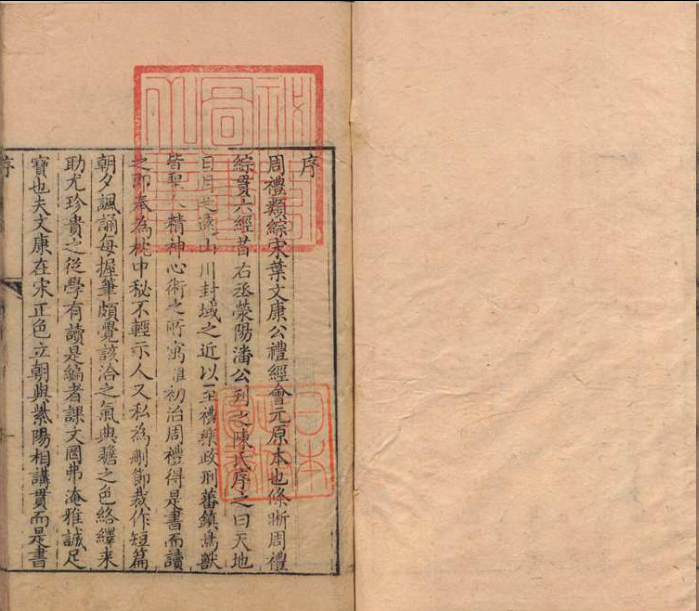 序
周禮類綜宋葉文康公禮經會元原本也條晰周禮
綜貫六經昔右丞滎陽潘公刋之陳氏序之曰天地
日月之遠山川封域之近以至禮樂政刑蕃鎮鳥獸
皆聖人精神心術之所寓雖初治周禮得是書而讀
之即奉為枕中秘不輕示人又私為刪節裁作短篇
朝夕諷誦每握筆頗覺該洽之氣典贍之色絡繹來
助尤珍貴之從學有讀是編者課文罔弗淹雅誠足
寶也夫文康在宋正色立朝與紫陽相講貫而是書
序
日本